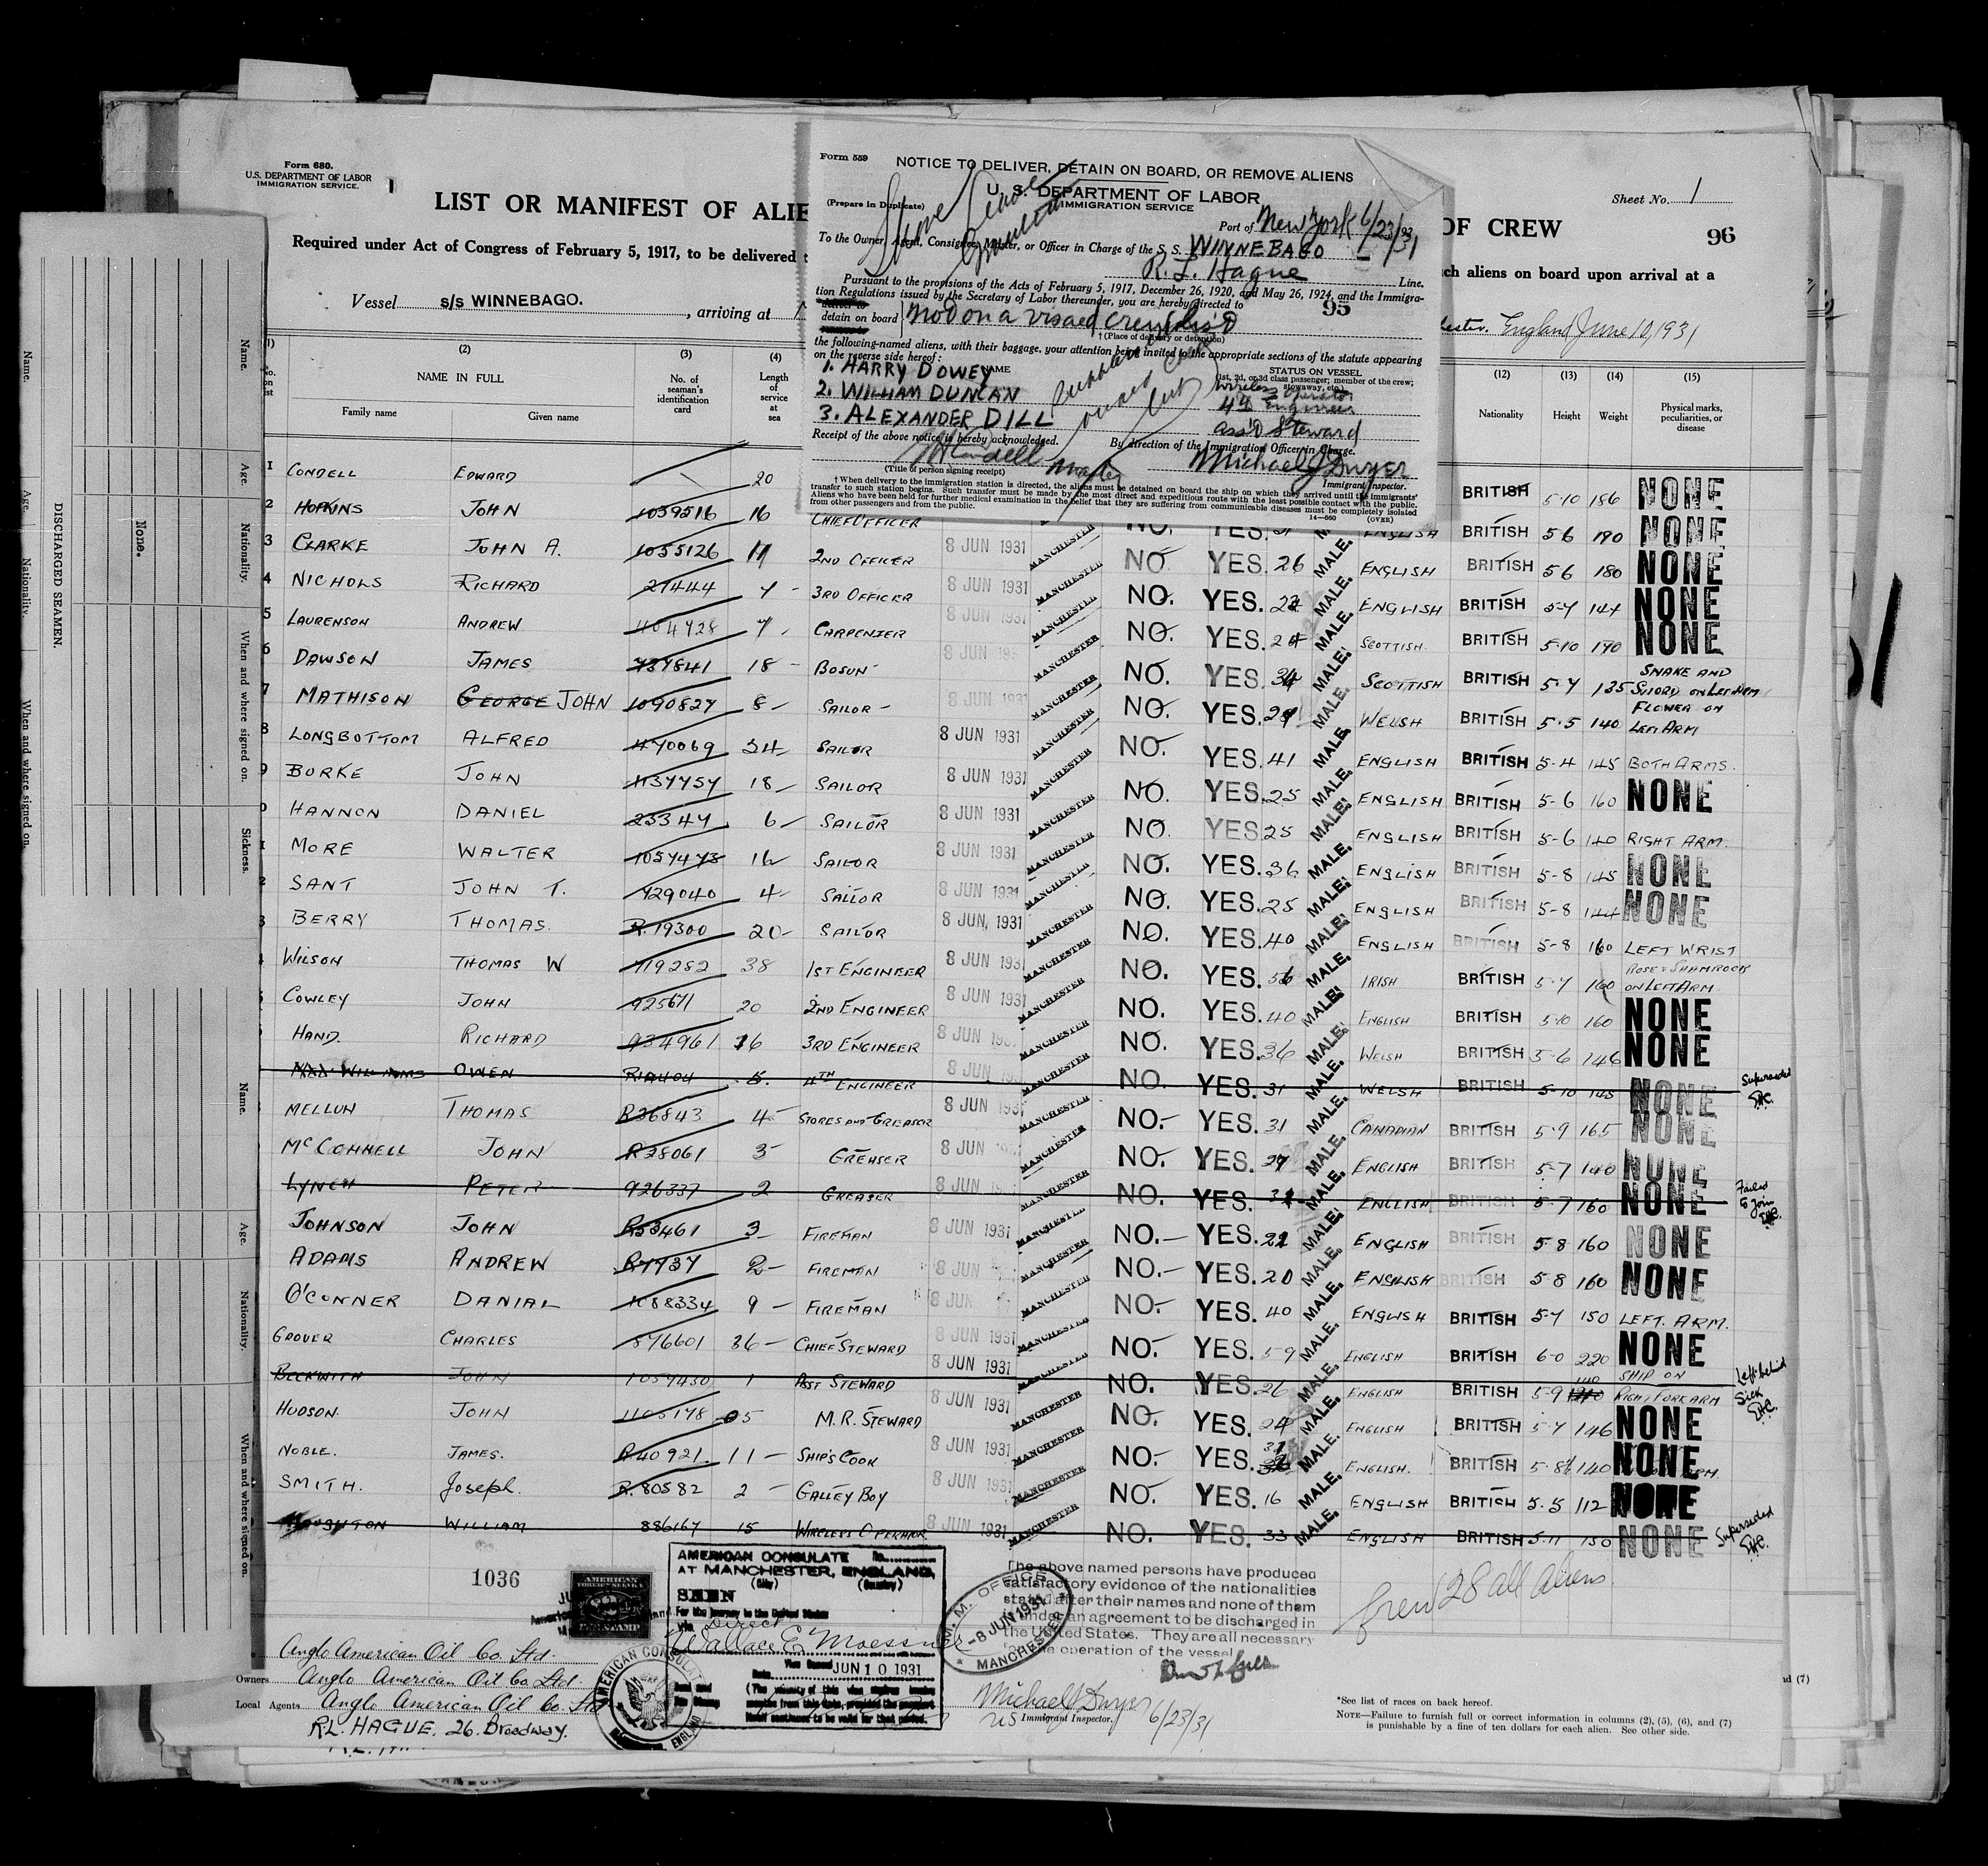 Form 680.
U.S. DEPARTMENT OF LABOR
IMMIGRATION SERVICE.
LIST OR MANIFEST OF ALIE
OF CREW
Sheet No. 1
96
Required under Act of Congress of February 5, 1917, to be delivered t
ch aliens on board upon arrival at a
Vessel s/s WINNEBAGO. , arriving at
England June 10, 1931
Form 559
NOTICE TO DELIVER, DETAIN ON BOARD, OR REMOVE ALIENS
U. S. DEPARTMENT OF LABOR
IMMIGRATION SERVICE
(Prepare in Duplicate)
Port of New York 6/23/31
To the Owner, Agent, Consignee, Master, or Officer in Charge of the S. S. WINNEBAGO
R. L. Hague Line.
Pursuant to the provisions of the Acts of February 5, 1917, December 26, 1920, and May 26, 1924, and the Immigra-
tion Regulations issued by the Secretary of Labor thereunder, you are hereby directed to
95
detain on board not on a visaed crew list
† (Place of delivery or detention)
the following-named aliens, with their baggage, your attention being invited to the appropriate sections of the statute appearing
on the reverse side hereof:
NAME
STATUS ON VESSEL
(1st, 2d, or 3d class passenger; member of the crew; stowaway, etc.)
1. HARRY DOWEY Wireless Operator
2. WILLIAM DUNCAN 4th Engineer
3. ALEXANDER DILL Ass't Steward
Receipt of the above notice is hereby acknowledged.
By direction of the Immigration Officer in Charge.
Master
Michael J Dwyer
(Title of person signing receipt)
Immigrant Inspector.
† When delivery to the immigration station is directed, the aliens must be detained on board the ship on which they arrived until the immigrants'
transfer to such station begins. Such transfer must be made by the most direct and expeditious route with the least possible contact with the public.
Aliens who have been held for further medical examination in the belief that they are suffering from communicable diseases must be completely isolated
from other passengers and from the public.
14—660
(OVER)
(2) (3) (4) (12) (13) (14) (15)
NAME IN FULL
Family name Given name
No. of seaman's identification card
Length of service at sea
Nationality Height Weight Physical marks, peculiarities, or disease
1 CONDELL EDWARD 20 BRITISH 5-10 186 NONE
2 HOPKINS JOHN 1039516 16 CHIEF OFFICER 8 JUN 1931 MANCHESTER NO. YES. MALE. ENGLISH BRITISH 5 6 190 NONE
3 CLARKE JOHN A. 1055126 11 2ND OFFICER 8 JUN 1931 MANCHESTER NO. YES. 26 MALE. ENGLISH BRITISH 5 6 180 NONE
4 NICHOLS RICHARD 27444 7 3RD OFFICER 8 JUN 1931 MANCHESTER NO. YES. MALE. ENGLISH BRITISH 5-7 147 NONE
5 LAURENSON ANDREW 7 CARPENTER 8 JUN MANCHESTER NO. YES. MALE. SCOTTISH. BRITISH 5-10 170 NONE
6 DAWSON JAMES 737841 18 BOSUN 8 JUN 1931 MANCHESTER NO. YES. 34 MALE. SCOTTISH BRITISH 5-7 135 SNAKE AND SWORD ON LEFT ARM
7 MATHISON GEORGE JOHN 1090827 8 SAILOR 8 JUN 1931 MANCHESTER NO. YES. 29 MALE. WELSH BRITISH 5-5 140 FLOWER ON LEFT ARM
8 LONGBOTTOM ALFRED 470069 24 SAILOR 8 JUN 1931 MANCHESTER NO. YES. 41 MALE. ENGLISH BRITISH 5-4 145 BOTH ARMS.
9 BURKE JOHN 1137757 18 SAILOR 8 JUN 1931 MANCHESTER NO. YES. 25 MALE. ENGLISH BRITISH 5-6 160 NONE
HANNON DANIEL 23347 6 SAILOR 8 JUN 1931 MANCHESTER NO. YES 25 MALE. ENGLISH BRITISH 5-6 140 RIGHT ARM.
MORE WALTER 1057473 16 SAILOR 8 JUN 1931 MANCHESTER NO. YES. 36 MALE. ENGLISH BRITISH 5-8 145 NONE
SANT JOHN T. 729040 4 SAILOR 8 JUN 1931 MANCHESTER NO. YES. 25 MALE. ENGLISH BRITISH 5-8 144 NONE
BERRY THOMAS. R.19300 20 SAILOR 8 JUN. 1931 MANCHESTER NO. YES. 40 MALE. ENGLISH BRITISH 5-8 160 LEFT WRIST
WILSON THOMAS W 719282 38 1ST ENGINEER 8 JUN 1931 MANCHESTER NO. YES. 56 MALE. IRISH BRITISH 5-7 160 ROSE & SHAMROCK ON LEFT ARM.
COWLEY JOHN 925671 20 2ND ENGINEER 8 JUN 1931 MANCHESTER NO. YES. 40 MALE. ENGLISH BRITISH 5-10 160 NONE
HAND. RICHARD 934961 16 3RD ENGINEER 8 JUN MANCHESTER NO. YES. 36 MALE. WELSH BRITISH 5-6 146 NONE
WILLIAMS OWEN 5. 4TH ENGINEER 8 JUN MANCHESTER NO. YES. 31 MALE. WELSH BRITISH 5-10 145 NONE Superseded
MELLUN THOMAS R36843 4 STORES AND GREASER 8 JUN 1931 MANCHESTER NO. YES. 31 MALE. CANADIAN BRITISH 5-9 165 NONE
McCONNELL JOHN R28061 3 GREASER 8 JUN MANCHESTER NO. YES. 27 MALE. ENGLISH BRITISH 5-7 140 NONE
LYNCH PETER 926337 2 GREASER 8 JUN MANCHESTER NO. YES. MALE. ENGLISH BRITISH 5-7 160 NONE Failed to join
JOHNSON JOHN R53461 3 FIREMAN 8 JUN 1931 MANCHESTER NO. YES. 22 MALE. ENGLISH BRITISH 5-8 160 NONE
ADAMS ANDREW R7737 2 FIREMAN 8 JUN MANCHESTER NO. YES. 20 MALE. ENGLISH BRITISH 5-8 160 NONE
O'CONNER DANIAL 1088334 9 FIREMAN 8 JUN MANCHESTER NO. YES. 40 MALE. ENGLISH BRITISH 5-7 150 LEFT. ARM.
GROVER CHARLES 876601 36 CHIEF STEWARD 8 JUN 1931 MANCHESTER NO. YES. 59 MALE. ENGLISH BRITISH 6-0 220 NONE
BECKWITH JOHN 1057430 1 ASST STEWARD 8 JUN 1931 MANCHESTER NO. YES. 26 MALE. ENGLISH BRITISH 5-9 140 SHIP ON RIGHT FOREARM Left behind sick
HUDSON. JOHN 1105178 05 M.R. STEWARD 8 JUN 1931 MANCHESTER NO. YES. 24 MALE. ENGLISH BRITISH 5-7 146 NONE
NOBLE. JAMES. R40921. 11 SHIP'S COOK 8 JUN 1931 MANCHESTER NO. YES. 31 MALE. ENGLISH. BRITISH 5-8½ 140 NONE
SMITH. Joseph. R.80582 2 GALLEY BOY 8 JUN 1931 MANCHESTER NO. YES. 16 MALE. ENGLISH BRITISH 5-5 112 NONE
WILLIAM 886167 15 WIRELESS OPERATOR 8 JUN 1931 MANCHESTER NO. YES. 33 MALE. ENGLISH BRITISH 5-11 150 NONE Superseded
1036
AMERICAN FOREIGN SERVICE
AMERICAN CONSULATE No.
AT MANCHESTER, ENGLAND,
(City) (Country)
SEEN
For the journey to the United States
via Direct
Wallace E Moessner
JUN 10 1931
AMERICAN CONSULATE
ENGLAND
M. M. OFFICE
-8 JUN 1931
MANCHESTER
The above named persons have produced
satisfactory evidence of the nationalities
stated after their names and none of them
under an agreement to be discharged in
the United States. They are all necessary
for the operation of the vessel
Crew 28 all aliens.
Anglo American Oil Co. Ltd.
Owners Anglo American Oil Co. Ltd.
Local Agents Anglo American Oil Co. Ltd
R.L. HAGUE. 26. Broadway.
Michael J Dwyer
US Immigrant Inspector. 6/23/31
nd (7)
*See list of races on back hereof.
NOTE—Failure to furnish full or correct information in columns (2), (5), (6), and (7)
is punishable by a fine of ten dollars for each alien. See other side.
Name. Age. Nationality. When and where signed on.
DISCHARGED SEAMEN.
None.
Name. Age. Nationality. When and where signed on. Sickness.
Name. Age. Nationality. When and where signed on.